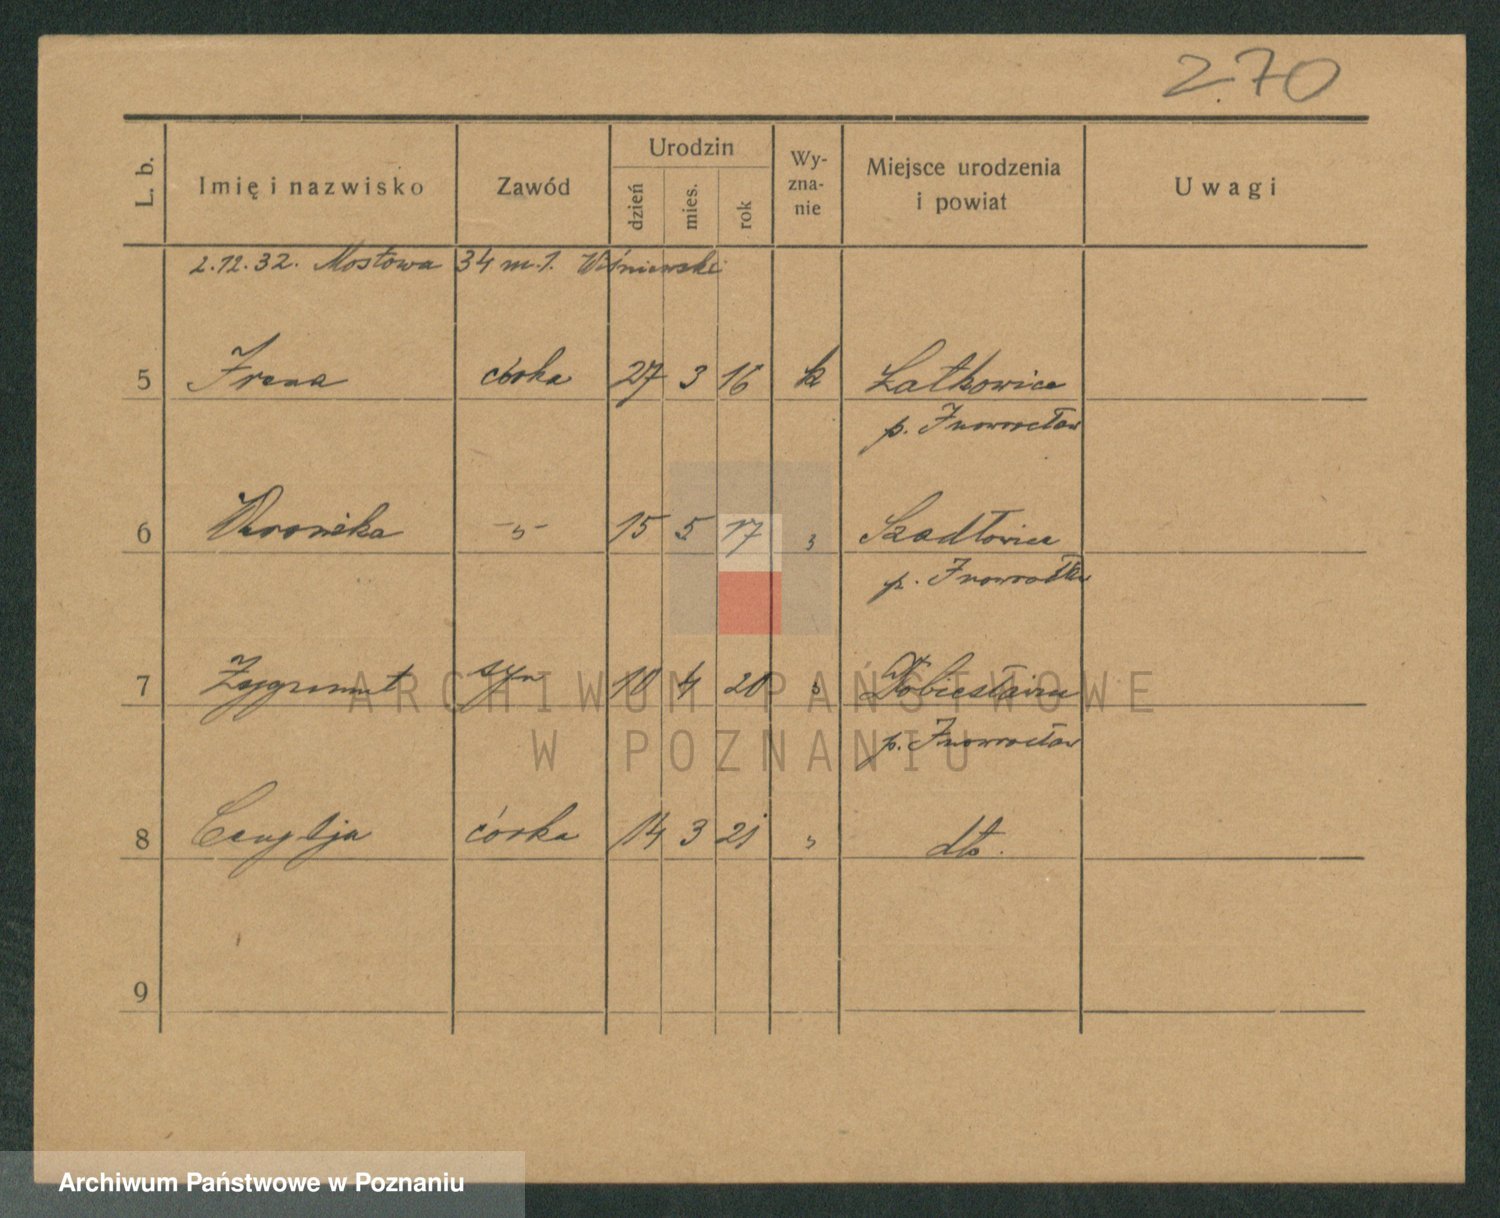 2.70
L. b. Imię i nazwisko Zawód Urodzin dzień mies. rok Wy-zna-nie Miejsce urodzenia i powiat Uwagi
2.12.32. Mostowa 34 m. 1. Wiśniewski
5 Irena córka 27 3 16 k Łatkowice
p. Inowrocław
6 Weronika -„- 15 5 17 „ Szadłowice
p. Inowrocław
7 Zygmunt syn 10 4 20 „
p. Inowrocław
8 córka 14 3 21 „ dto.
9
ARCHIWUM PAŃSTWOWE
W POZNANIU
Archiwum Państwowe w Poznaniu